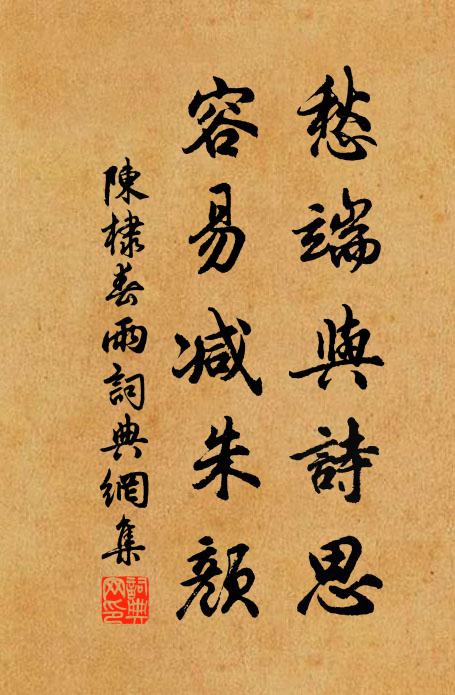 愁端與詩思
容易減朱顏
陳棣春雨詞典網集
詞典網印